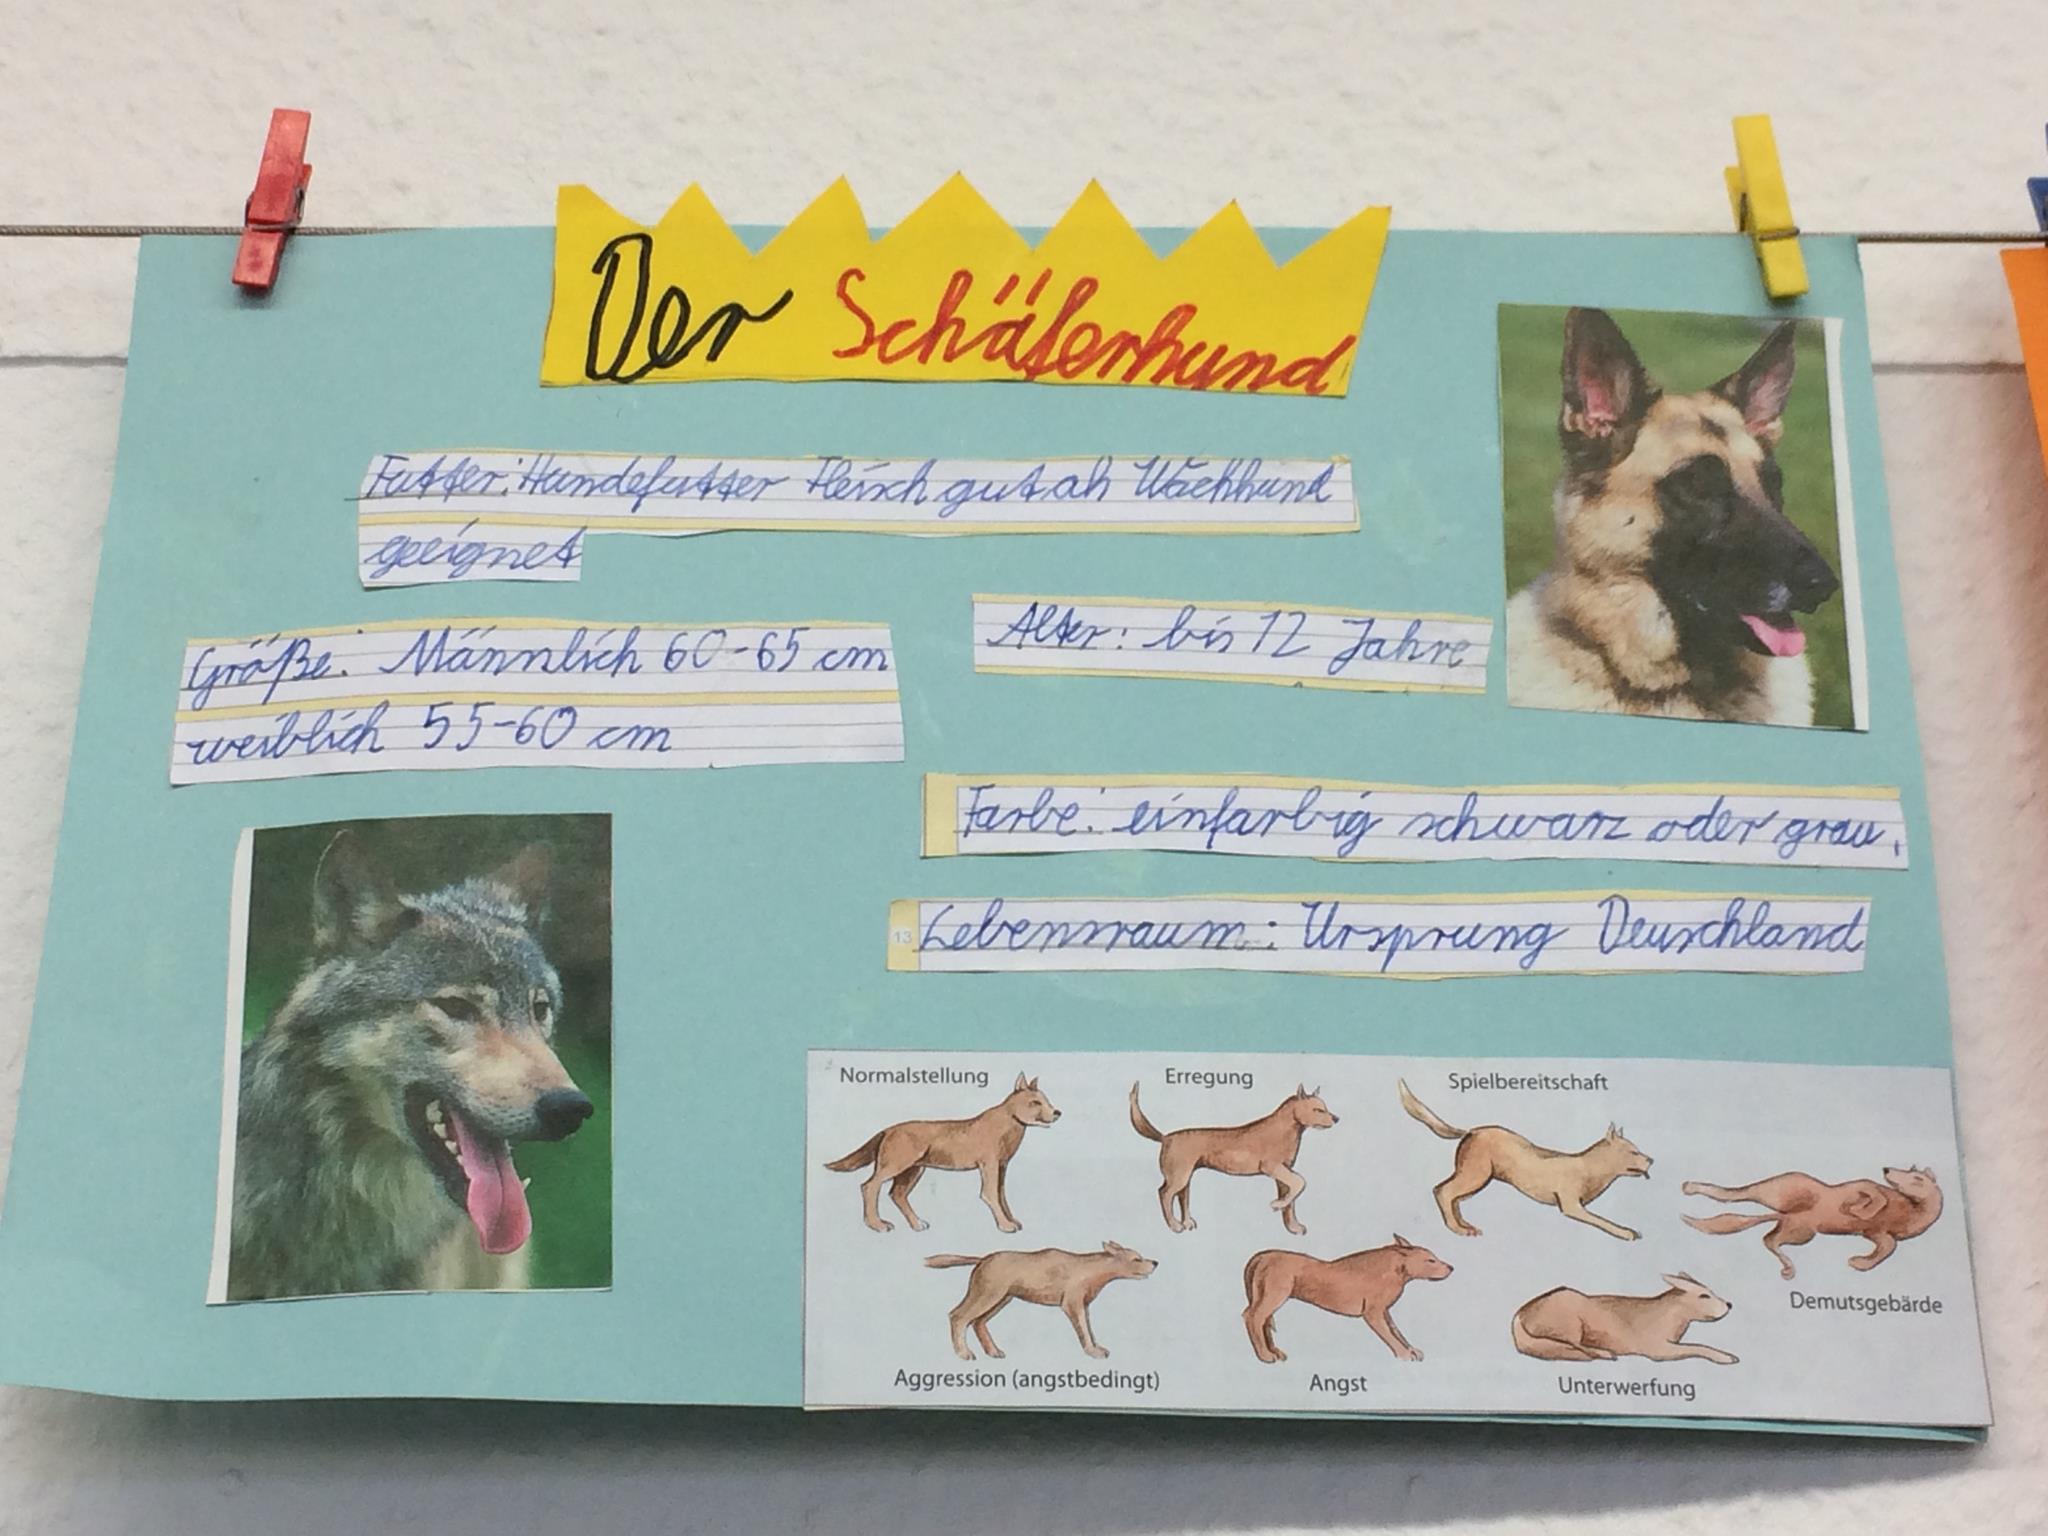 Der Schäferhund
Futter: Hundefutter Fleisch gut als Wachhund
geeignet
Größe: Männlich 60-65 cm
weiblich 55-60 cm
Alter: bis 12 Jahre
Farbe: einfarbig schwarz oder grau,
13 Lebensraum: Ursprung Deuschland
Normalstellung Erregung Spielbereitschaft
Demutsgebärde
Aggression (angstbedingt) Angst Unterwerfung